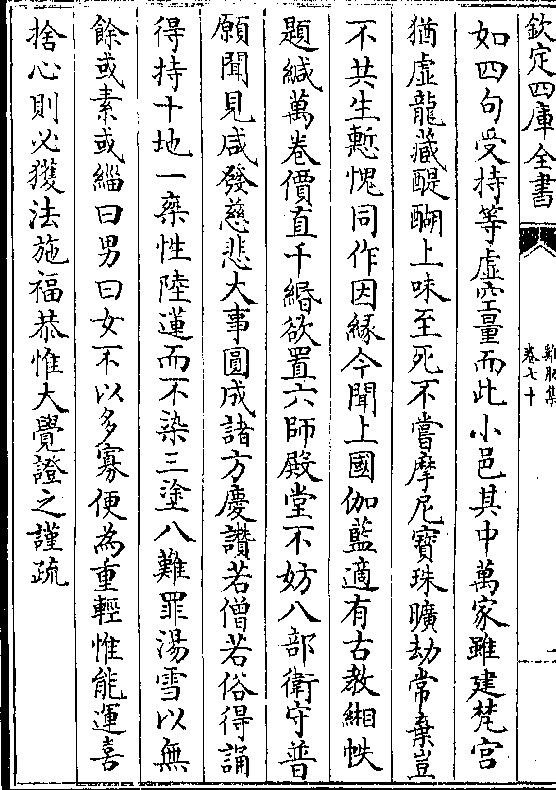 欽定四庫全書
雞肋集
卷七十
二
如四句受持等虛空量而此小邑其中萬家雖建梵宮
猶虛龍藏醍醐上味至死不嘗摩尼寶珠曠劫常棄豈
不共生慙愧同作因縁今聞上國伽藍適有古教緗帙
題緘萬卷價直千緡欲置六師殿堂不妨八部衛守普
願聞見咸發慈悲大事圓成諸方慶讚若僧若俗得誦
得持十地一乘性陸蓮而不染三塗八難罪湯雪以無
餘或素或緇曰男曰女不以多寡便為重輕惟能運喜
捨心則必獲法施福恭惟大覺證之謹疏